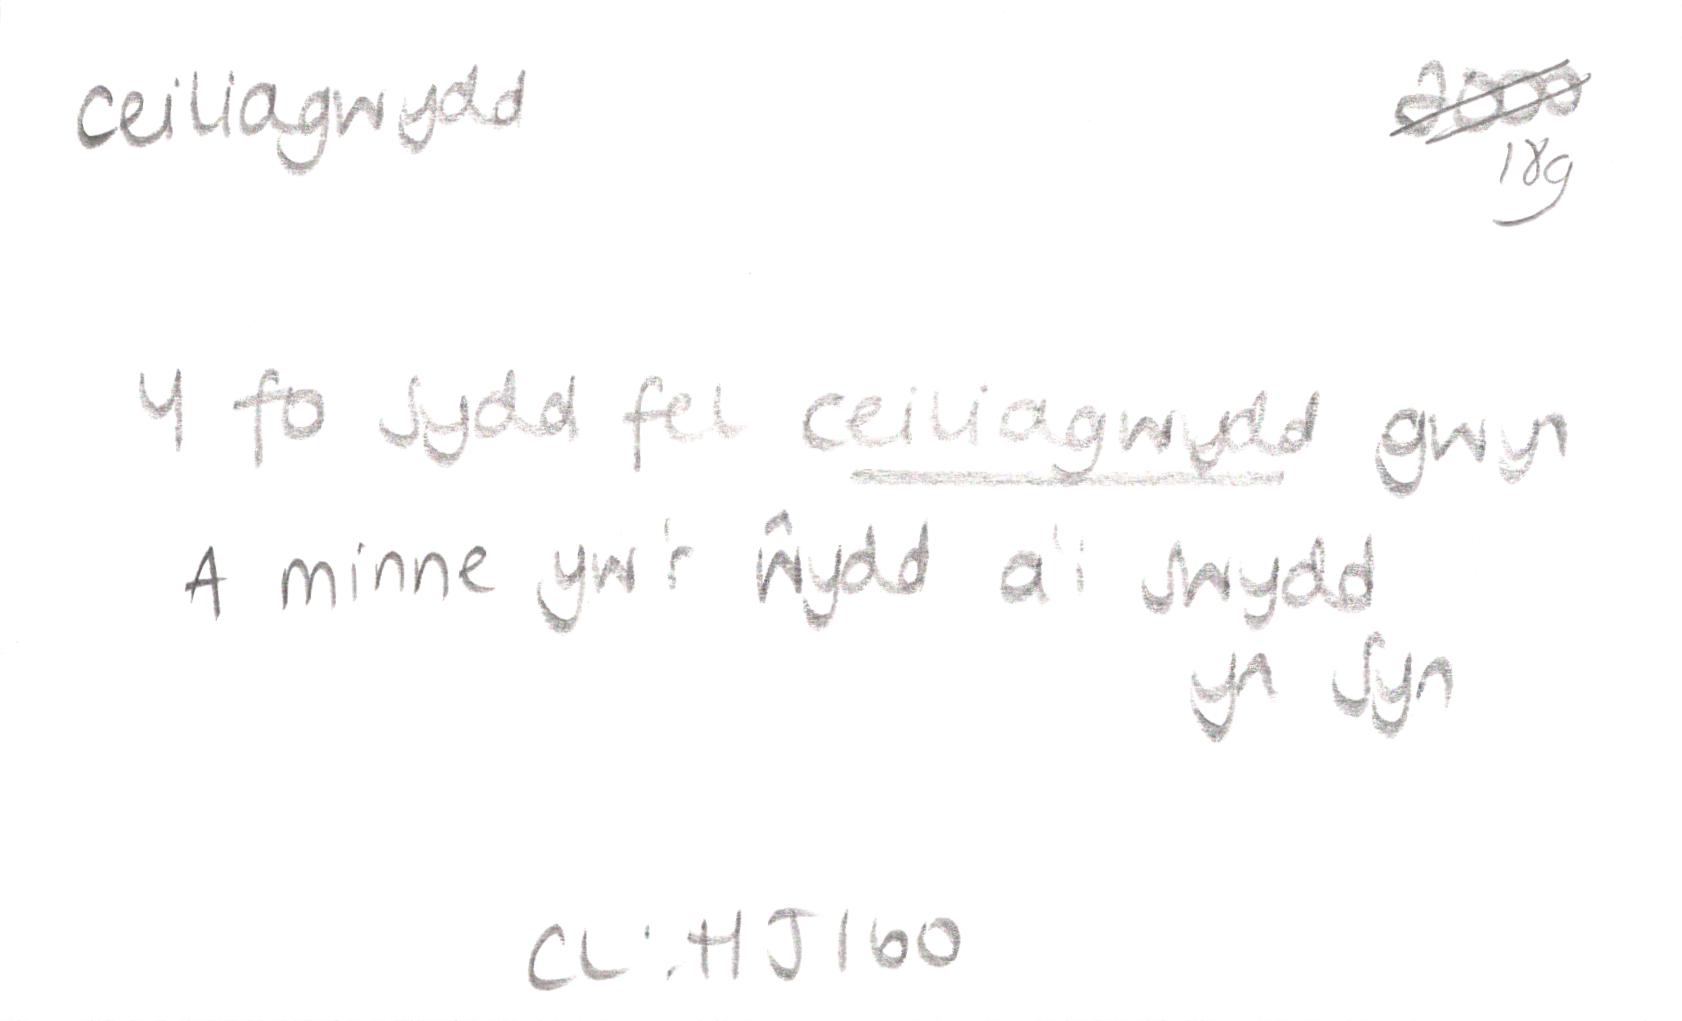 ceiliagwydd
2000
18g
Y fo sydd fel ceiliagwydd gwyn
A minne yw'r ŵydd a'i swydd
yn syn
CL:HJ160